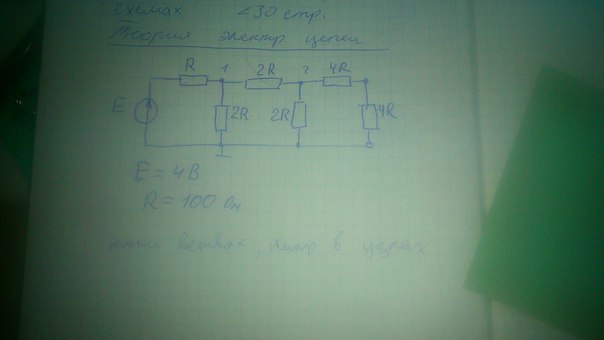 схемах <30 стр.
Теория электр цепей
R 1 2R 2 4R
E 2R 2R 4R
E = 4В
R = 100 Ом
токи ветвях, напр в узлах